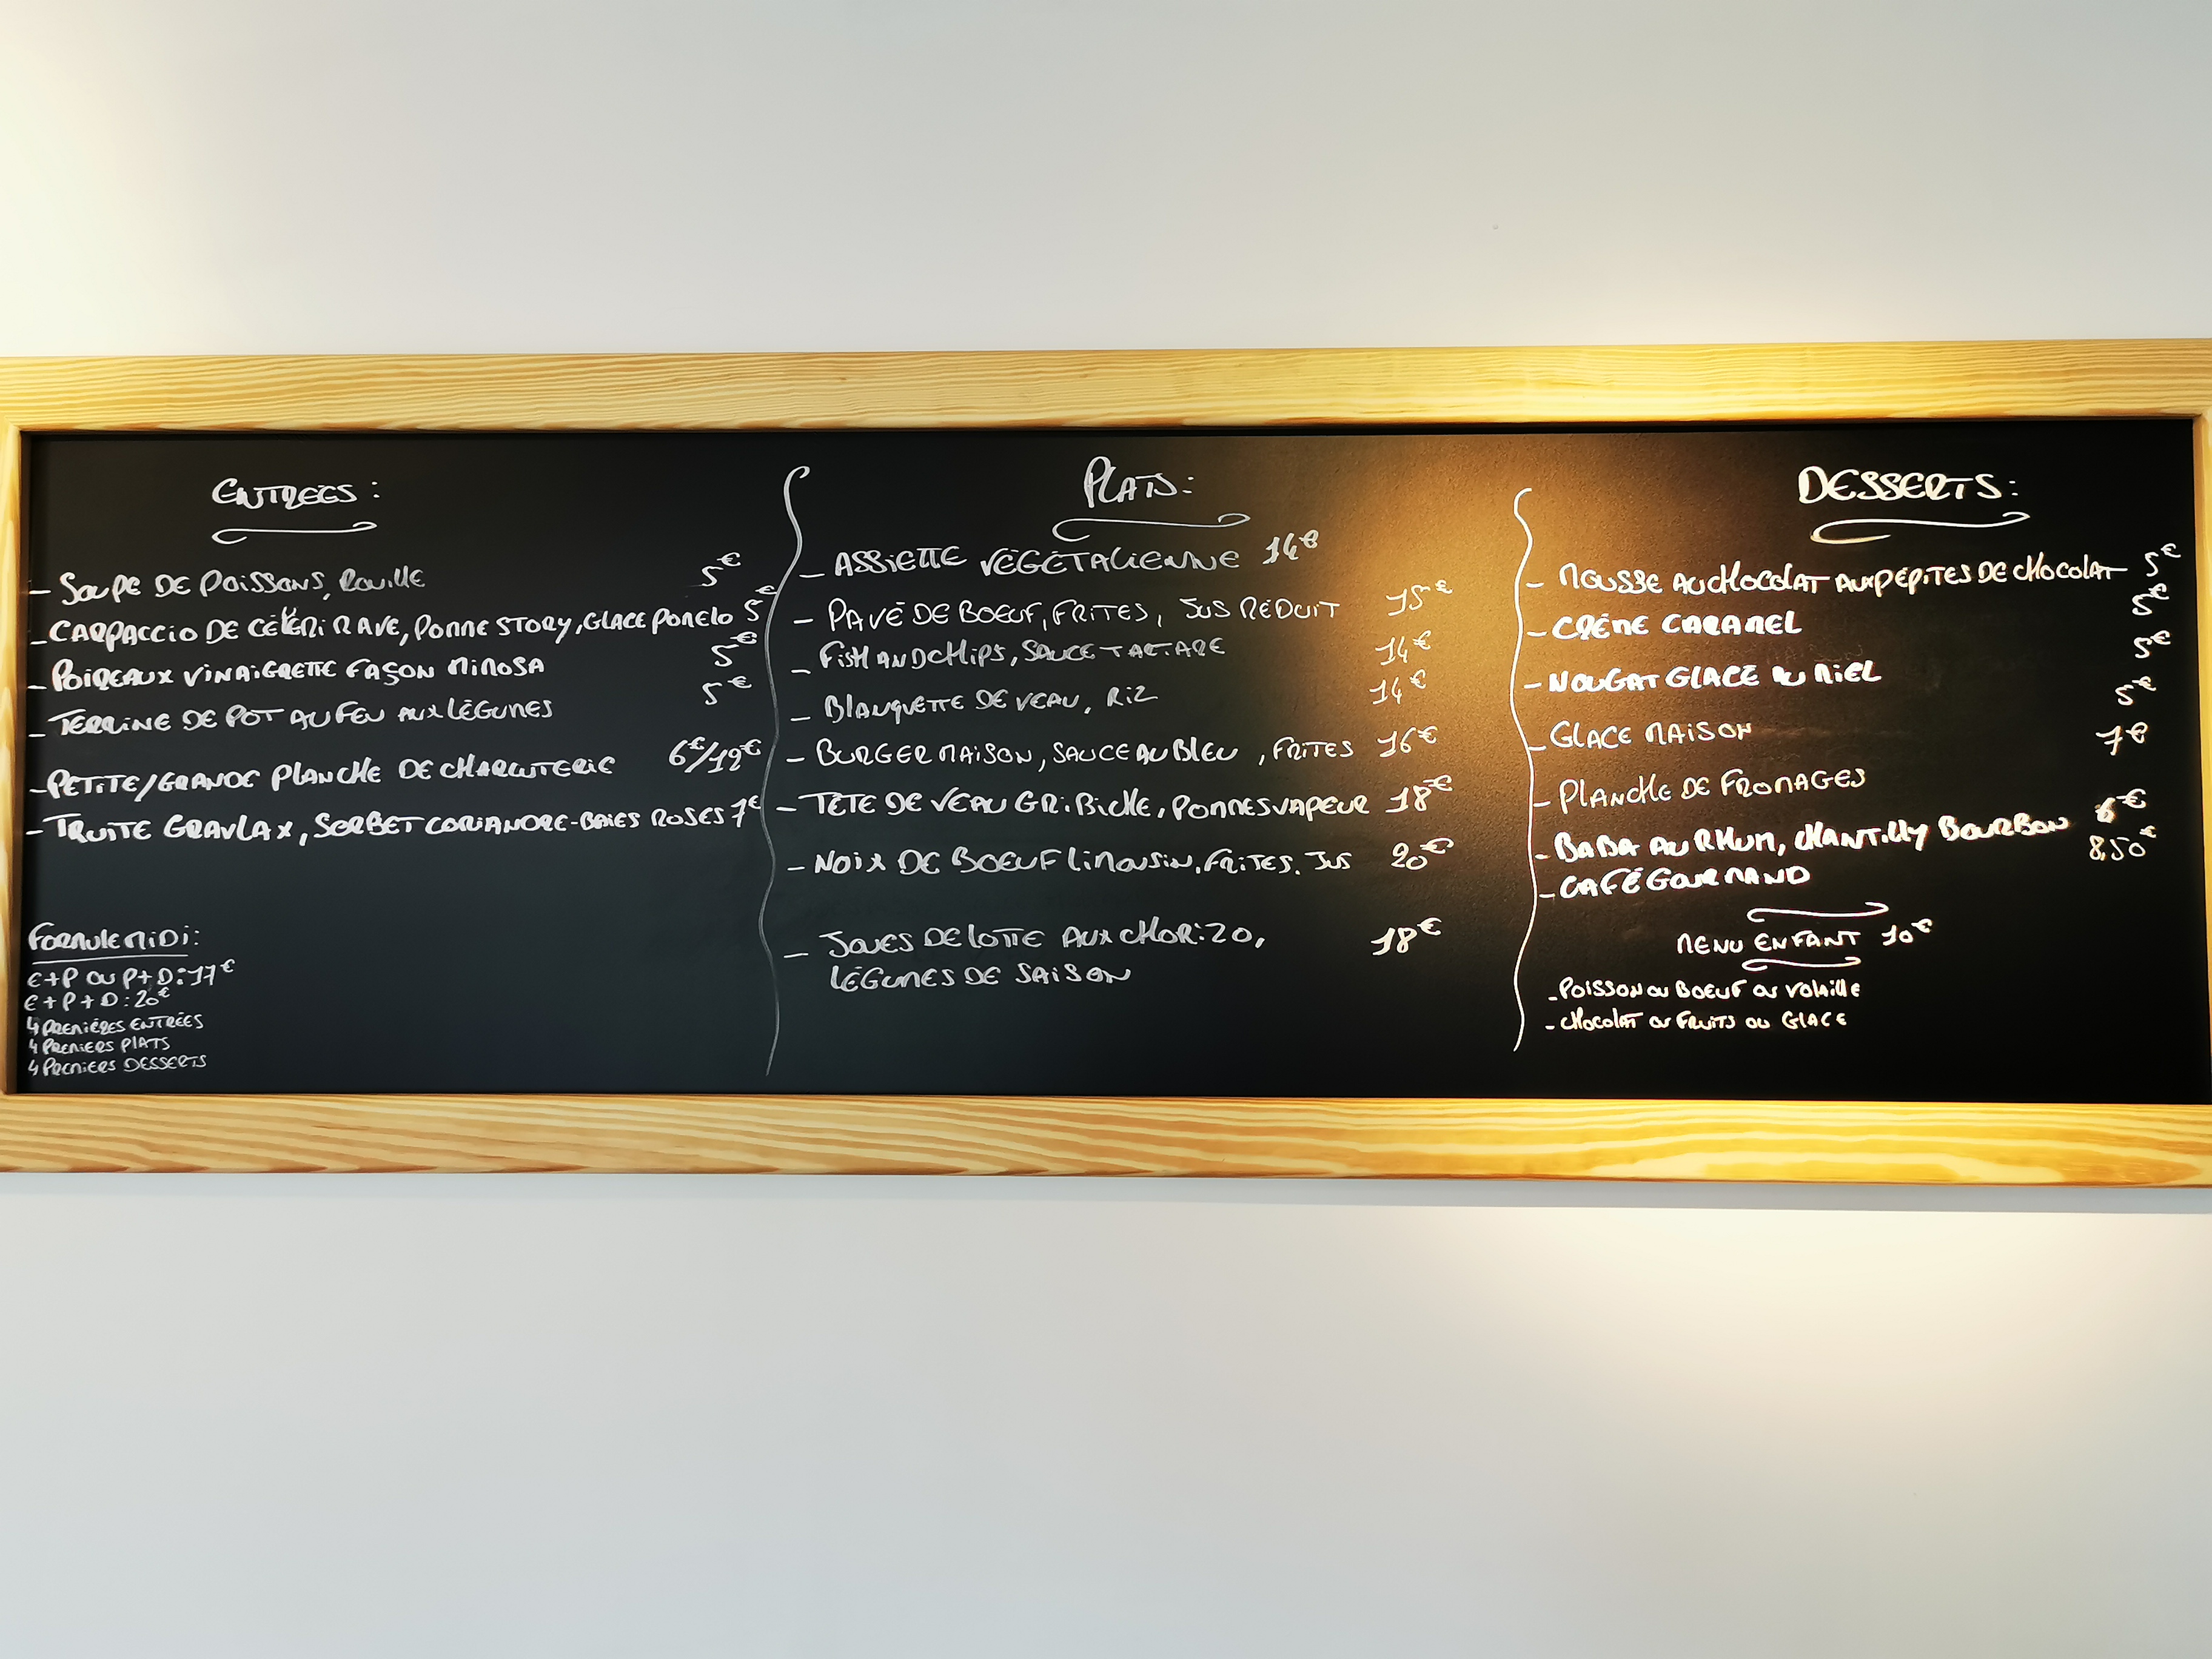 ENTRÉES :
- SOUPE DE POISSONS, ROUILLE 5€
- CARPACCIO DE CÉLERI RAVE, POMME STORY, GLACE POMELO 5€
- POIREAUX VINAIGRETTE FAÇON MIMOSA 5€
- TERRINE DE POT AU FEU AUX LÉGUMES 5€
- PETITE/GRANDE PLANCHE DE CHARCUTERIE 6€/12€
- TRUITE GRAVLAX, SORBET CORIANDRE-BAIES ROSES 7€
FORMULE MIDI :
E+P OU P+D : 17€
E+P+D : 20€
4 PREMIÈRES ENTRÉES
4 PREMIERS PLATS
4 PREMIERS DESSERTS
PLATS :
- ASSIETTE VÉGÉTALIENNE 14€
- PAVÉ DE BOEUF, FRITES, JUS RÉDUIT 15€
- FISH AND CHIPS, SAUCE TARTARE 14€
- BLANQUETTE DE VEAU, RIZ 14€
- BURGER MAISON, SAUCE AU BLEU, FRITES 16€
- TÊTE DE VEAU GRIBICHE, POMMES VAPEUR 18€
- NOIX DE BOEUF LIMOUSIN, FRITES, JUS 20€
- JOUES DE LOTTE AUX CHORIZO, 18€
LÉGUMES DE SAISON
DESSERTS :
- MOUSSE AU CHOCOLAT AUX PÉPITES DE CHOCOLAT 5€
- CRÈME CARAMEL 5€
- NOUGAT GLACÉ AU MIEL 5€
- GLACE MAISON 5€
- PLANCHE DE FROMAGES 7€
- BABA AU RHUM, CHANTILLY BOURBON 6€
- CAFÉ GOURMAND 8,50€
MENU ENFANT 10€
- POISSON OU BOEUF OU VOLAILLE
- CHOCOLAT OU FRUITS OU GLACE